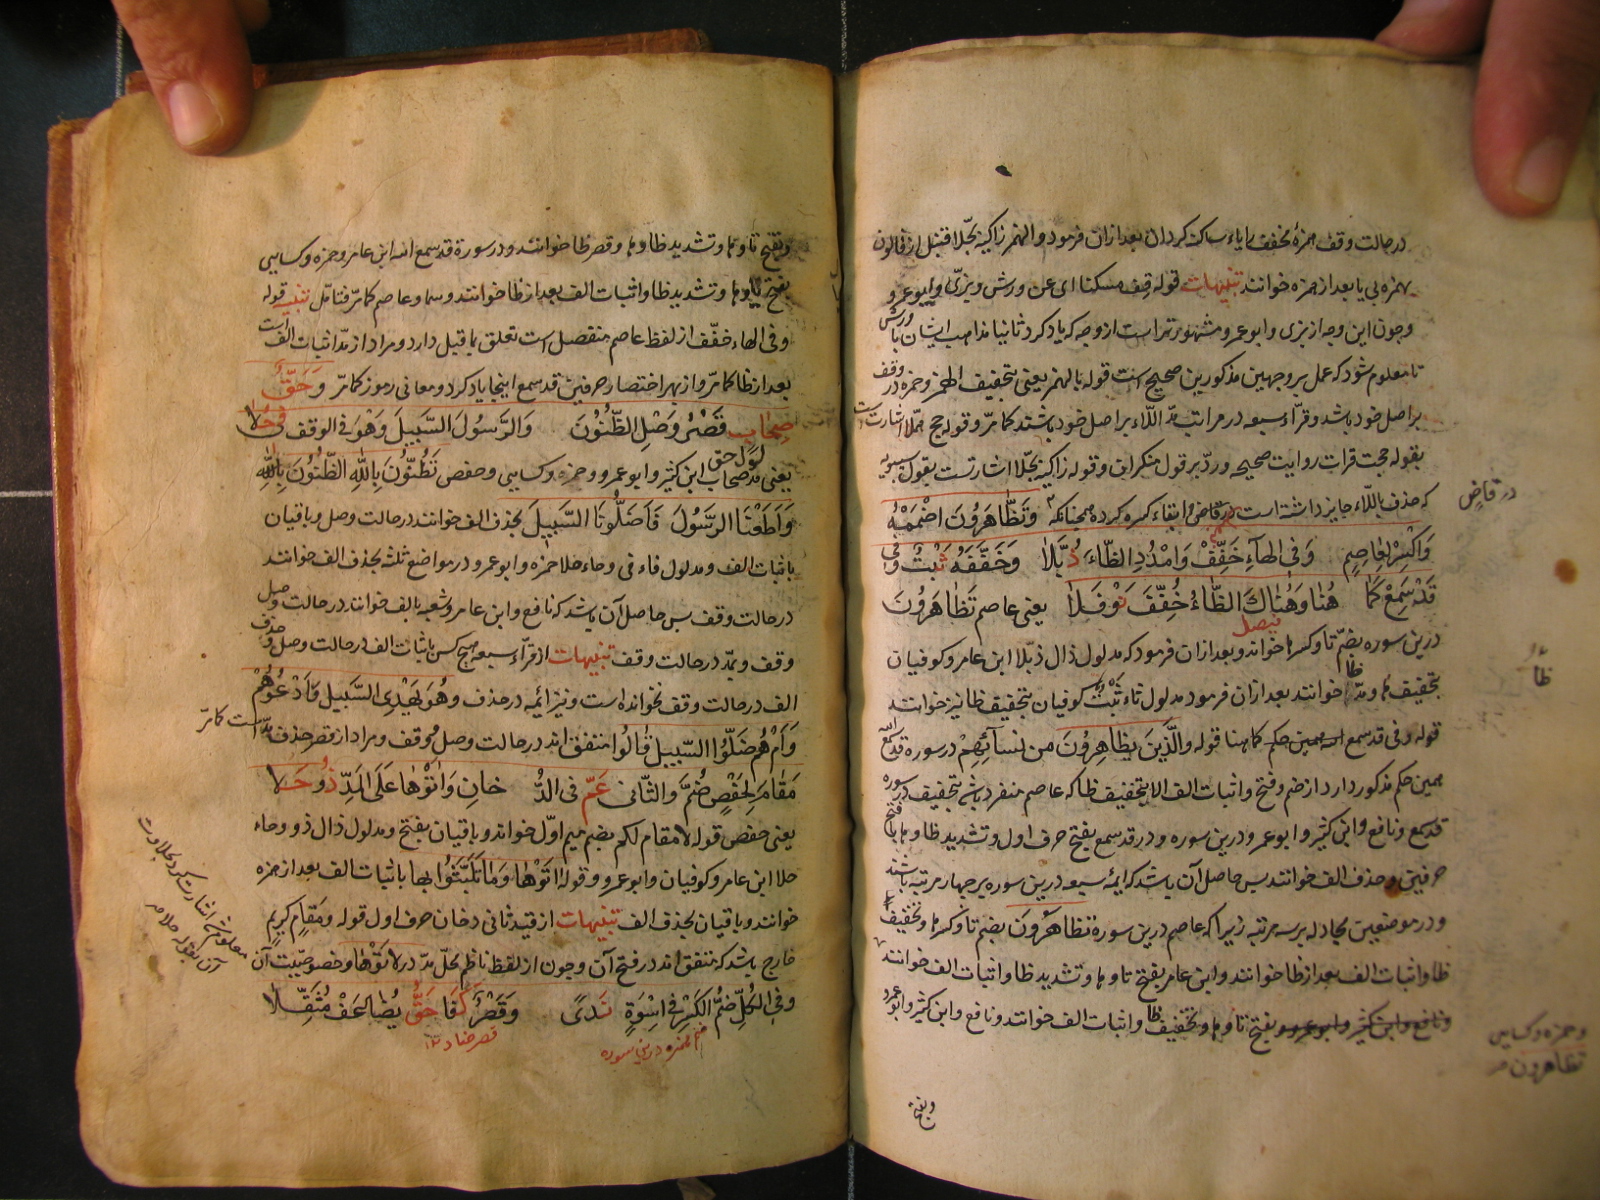 در حالت وقف همزهٔ مخففه یا یاء ساکنه کردان بعد از آن فرمود و الهمز زاکیه بجلا قنبل از قالون
بهمزه بی یا بعد از همزه خوانند تنبیهات قوله قف مسکنا ای عن ورش و بزی و ابو عمرو
و چون این وجه از بزی و ابو عمرو مشهورتر است از وجه که یاد کرد ثانیا مذاهب ایشان با ورش
تا معلوم شود که عمل بر وجهین مذکورین صحیح است قوله بالهمز یعنی بتحقیف الهمز و حمزه در وقف
بر اصل خود باشد و قراء سبعه در مراتب مد اللاء بر اصل خود باشند کما مر و قوله حج هملا اشارتست
بقوله حجت قرات روایت صحیحه و رد بر قول منکران و قوله زاکیه بجلا اشارتست بقول سیبویه
که حذف یا اللاء جایز داشته است در قاض و ابقاء کسره کرده همچنانکه وَتَظَّاهَرُونَ اضْمُمْهُ
وَاكْسِرْ لِعَاصِمٍ وَفِي الْهَاءِ خَفِّفْ وَامْدُدِ الظَّاءَ ذُبَّلَا وَخَفَّفَهُ ثَبْتٌ وَفِي
قَدْ سَمِعْ كَمَا هُنَا وَهُنَاكَ الظَّاءُ خُفِّفَ نَوْفَلَا یعنی عاصم تَظَاهَرُونَ
درین سوره بضم تا و کسر ها خواند و بعد از آن فرمود که مدلول ذال ذبلا ابن عامر و کوفیان
بتخفیف ها و مد ظا خوانند بعد از آن فرمود مدلول ثاء ثبت کوفیان بتخفیف ظا نیز خوانند
قوله و فی قد سمع الله همین حکم کما هنا قوله وَالَّذِينَ يُظَاهِرُونَ مِنْ نِسَائِهِمْ در سوره قد سمع الله
همین حکم مذکور دارد از ضم و فتح و اثبات الف الا بتخفیف ظا که عاصم منفرد باشد بتخفیف در سوره
قد سمع و نافع و ابن کثیر و ابو عمرو درین سوره و در قد سمع بفتح حرف اول و تشدید ظا و ها با فتح
حرفین و حذف الف خوانند پس حاصل آن باشد که ایمهٔ سبعه درین سوره بر چهار مرتبه باشند
و در موضعین مجادله بر سه مرتبه زیرا که عاصم درین سوره تظاهرون بضم تا و کسر ها و تخفیف
ظا و اثبات الف بعد از ظا خوانند و ابن عامر بفتح تا و ها و تشدید ظا و اثبات الف خوانند
و نافع و ابن کثیر و ابو عمرو بفتح تا و ها و تخفیف ظا و اثبات الف خوانند و نافع و ابن کثیر و ابو عمرو
در قاضٍ
ظا
و حمزه و کسایی
تظاهرون
و بفتح
و بفتح تا و ها و تشدید ظا و ها و قصر ظا خوانند و در سورة قد سمع الله ابن عامر و حمزه و کسایی
بفتح یا و ها و تشدید ظا و اثبات الف بعد از ظا خوانند و سما و عاصم کما مر فتامل تنبیه قوله
و فی الهاء خفف از لفظ عاصم منفصل است تعلق بما قبل دارد و مراد از مد اثبات الف است
بعد از ظا کما مر و از بهر اختصار حرفین قد سمع اینجا یاد کرد و معانی رموز کما مر وَحَقُّ
صِحَابٍ قَصْرُ وَصْلِ الظُّنُونَ وَالرَّسُولَ السَّبِيلَ وَهْوَ فِي الوَقْفِ فِي حُلَا
یعنی مدلول حق صحاب ابن کثیر و ابو عمرو و حمزه و کسایی و حفص تَظُنُّونَ بِاللهِ الظُّنُونَ بِاللهِ
وَأَطَعْنَا الرَّسُولَ فَأَضَلُّونَا السَّبِيلَ بحذف الف خوانند در حالت وصل و باقیان
باثبات الف و مدلول فاء فی و حاء حلا حمزه و ابو عمرو در مواضع ثلثه بحذف الف خوانند
در حالت وقف پس حاصل آن باشد که نافع و ابن عامر و شعبه بالف خوانند در حالت وصل
وقف و بمد در حالت وقف تنبیهات از قراء سبعه هیچ کس باثبات الف در حالت وصل و حذف
الف در حالت وقف نخوانده است و نیز ایمه در حذف وَهُوَ يَهْدِي السَّبِيلَ وَادْعُوهُمْ
وَأَمْ هُمْ ضَلُّوا السَّبِيلَ قَالُوا متفق اند در حالت وصل و وقف و مراد از قصر حذف مد است کما مر
مَقَامَ لِحَفْصٍ ضُمَّ وَالثَّانِ عَمَّ فِي الدُّ خَانِ وَآتَوْهَا عَلَى الْمَدِّ ذُو حَلَا
یعنی حفص قوله لا مقام لکم بضم میم اول خواند و باقیان بفتح و مدلول ذال ذو و حاء
حلا ابن عامر و کوفیان و ابو عمرو و قوله لَآتَوْهَا وَمَا تَلَبَّثُوا بِهَا باثبات الف بعد از همزه
خوانند و باقیان بحذف الف تنبیهات از قید ثانی دخان حرف اول قوله وَمَقَامٍ كَرِيمٍ
خارج باشد که متفق اند در فتح آن و چون از لفظ ناظم محل مد در لاتوها و خصوصیت آن
وَفِي الْكُلِّ ضَمُّ الْكَسْرِ فِي أُسْوَةٌ نَدًى وَقَصْرُ كِفَا حَقٍّ يُضَاعَفْ مُثَقَّلَا
همزه درین سوره
معلوم نمی
آن بقوله حلا مر